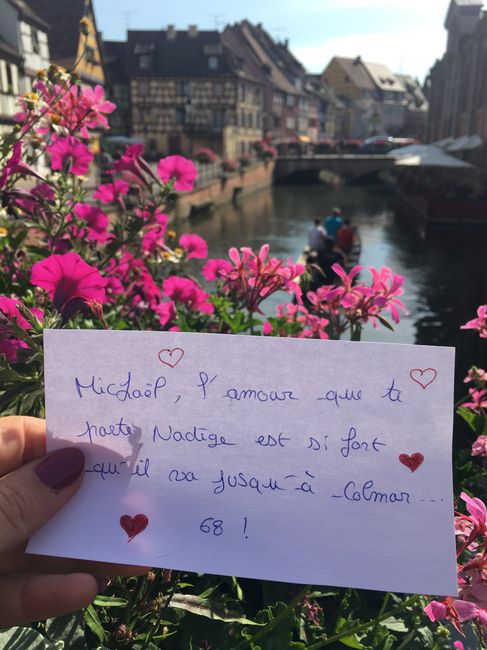 Mickaël, l'amour que te
porte Nadège est si fort
qu'il va jusqu'à Colmar...
68 !